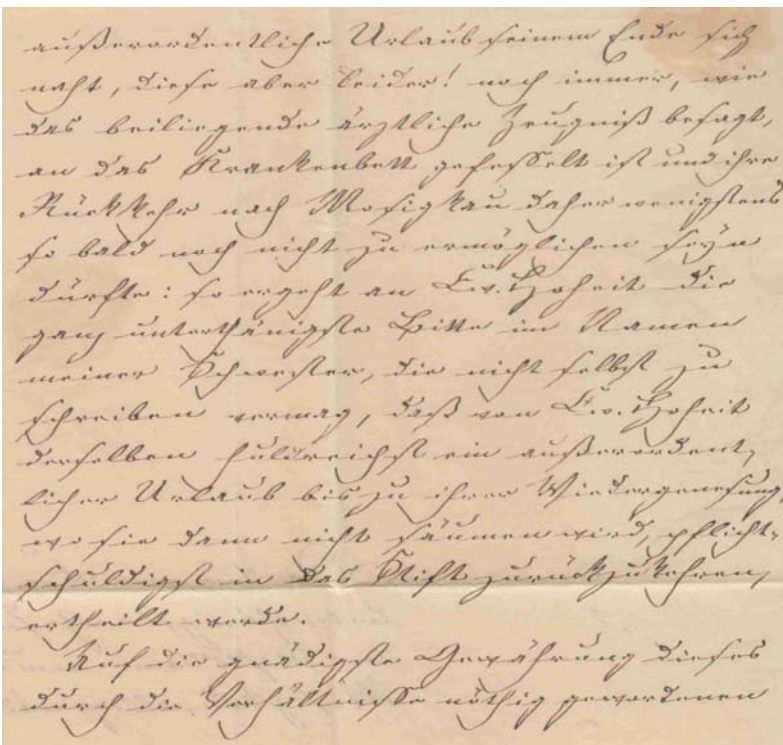 außerordentliche Urlaub seinem Ende sich
naht, diese aber leider! noch immer, wie
das beiliegende ärztliche Zeugniß besagt,
an das Krankenbett gefesselt ist und ihre
Rückkehr nach Mosigkau daher wenigstens
so bald noch nicht zu ermöglichen seyn
dürfte: so ergeht an Ew. Hoheit die
ganz unterthänigste Bitte im Namen
meiner Schwester, die nicht selbst zu
schreiben vermag, daß von Ew. Hoheit
derselben huldreichst ein außerordent-
licher Urlaub bis zu ihrer Wiedergenesung,
wo sie dann nicht säumen wird, pflicht-
schuldigst in das Stift zurückzukehren,
ertheilt werde.
Auf die gnädigste Gewährung dieses
durch die Verhältnisse nöthig gewordenen